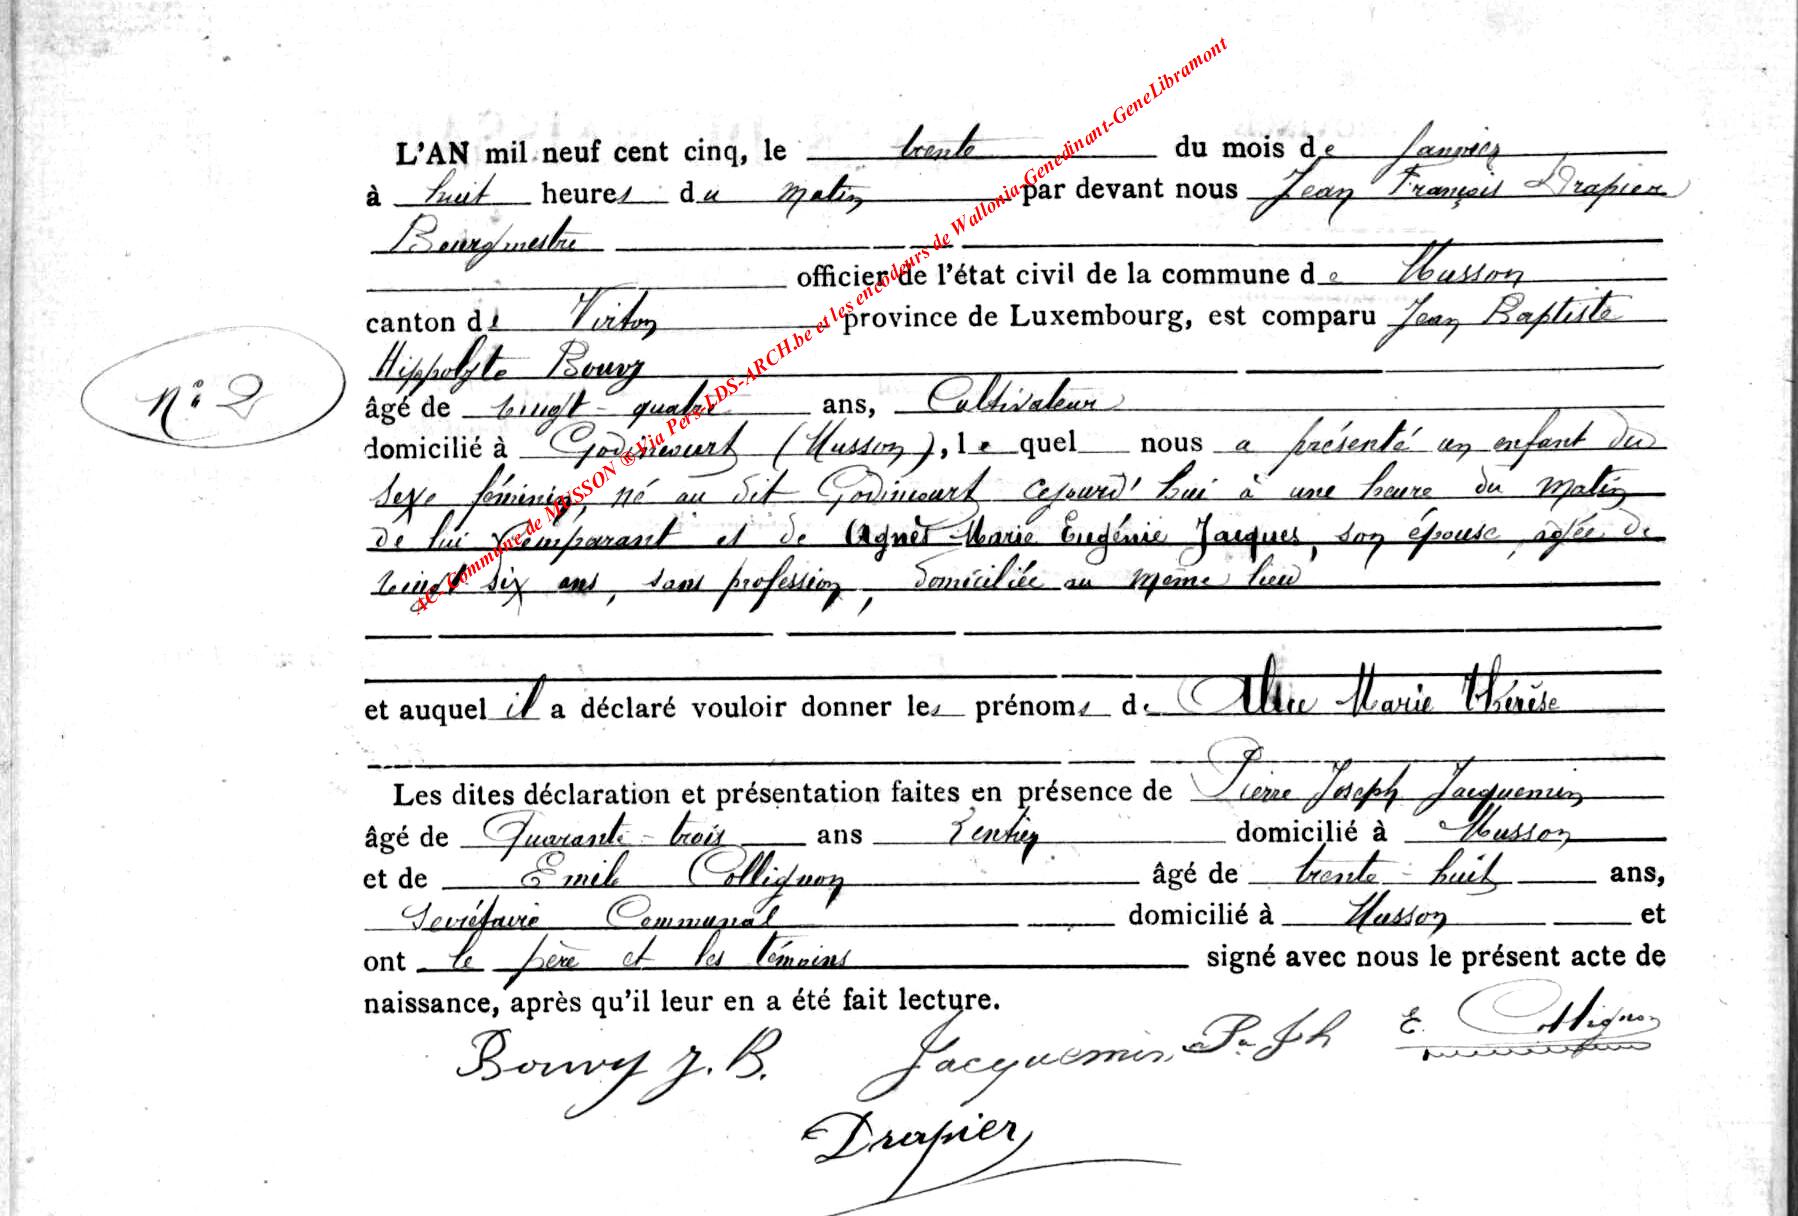 L'AN mil neuf cent cinq, le trente du mois de Janvier
à huit heures du matin par devant nous Jean François Drapier
Bourgmestre
officier de l'état civil de la commune de Musson
canton de Virton province de Luxembourg, est comparu Jean Baptiste
Hippolyte Bouvy
âgé de vingt-quatre ans, Cultivateur
N° 2
domicilié à Godincourt (Musson), lequel nous a présenté un enfant du
sexe féminin, né au dit Godincourt cejourd'hui à une heure du matin
de lui comparant et de Agnès Marie Eugénie Jacques, son épouse, agée de
vingt six ans, sans profession, domiciliée au même lieu
et auquel il a déclaré vouloir donner les prénoms de Alice Marie Thérèse
Les dites déclaration et présentation faites en présence de Pierre Joseph Jacquemin
âgé de Quarante-trois ans Rentier domicilié à Musson
et de Emile Collignon âgé de trente-huit ans,
Secrétaire Communal domicilié à Musson et
ont le père et les témoins signé avec nous le présent acte de
naissance, après qu'il leur en a été fait lecture.
Bouvy J. B. Jacquemin P. Jh E. Collignon
Drapier
4e- Commune de MUSSON ® Via Pers-LDS-ARCH.be et les encodeurs de Wallonia-Genedinant-GeneLibramont